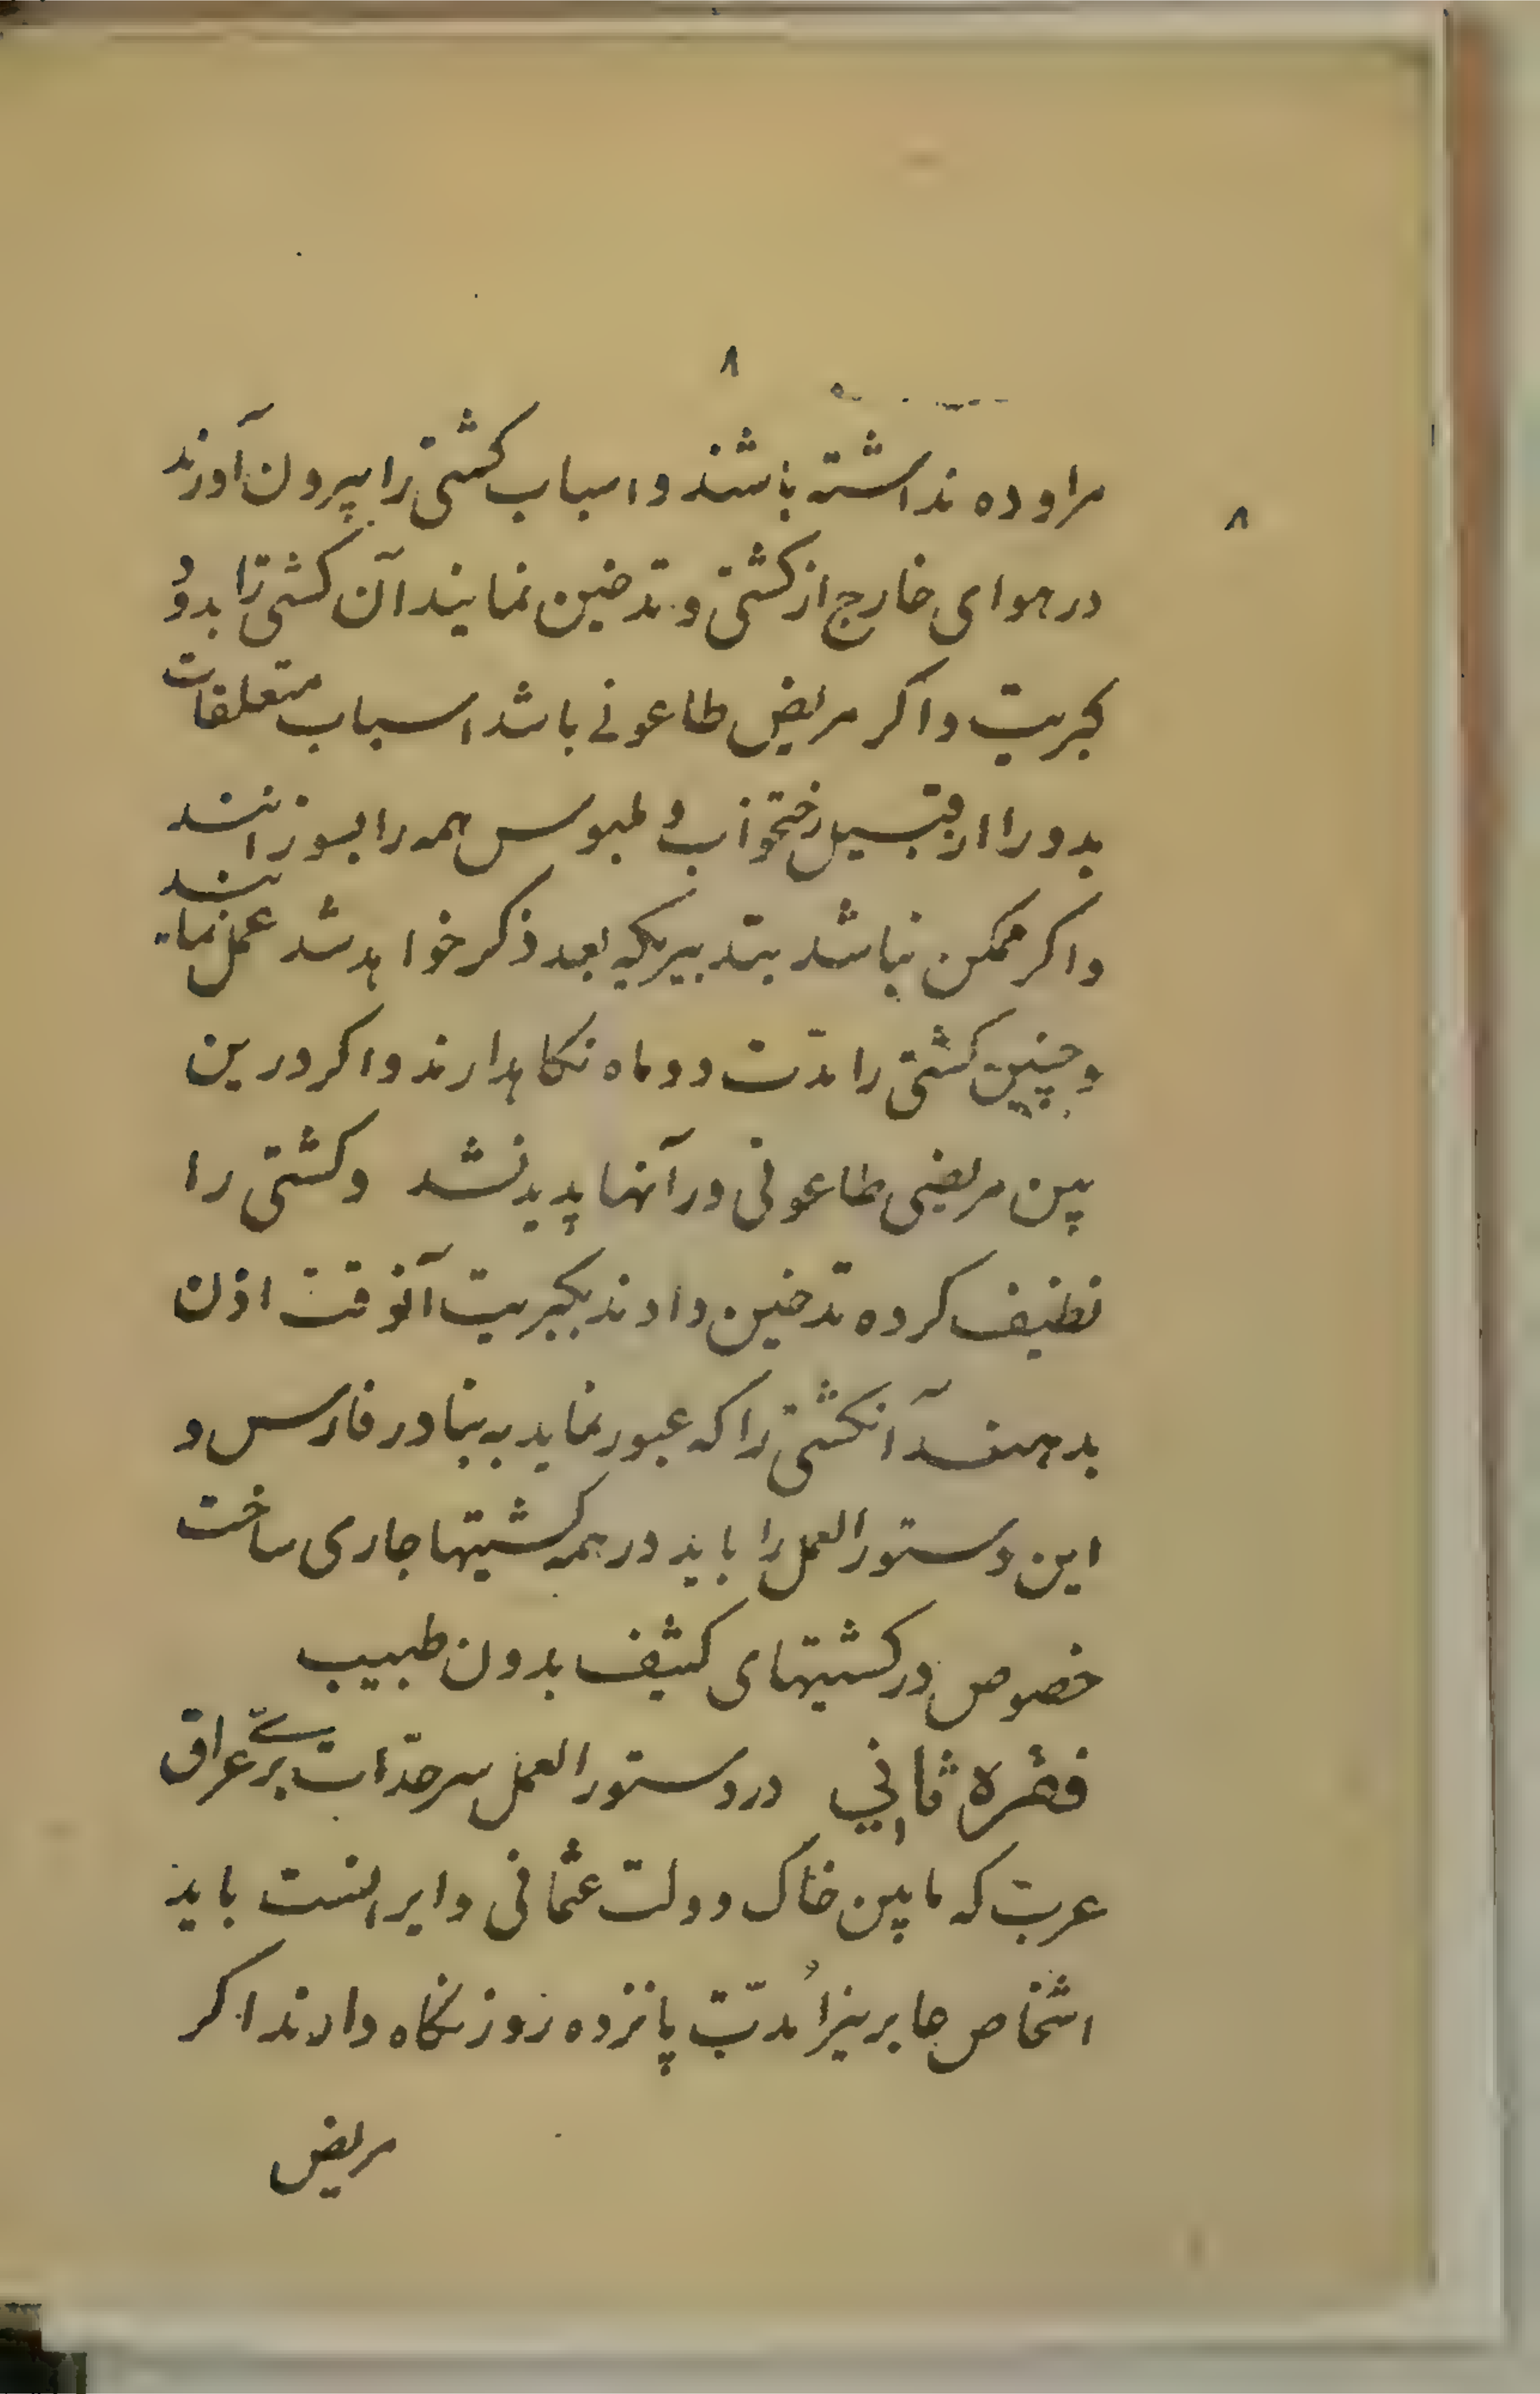 ۸
۸
مراوده نداشته باشند و اسباب کشتی را بیرون آورند
در هوای خارج از کشتی و تدخین نمایند آن کشتی را بدود
کبریت و اکر مریض طاعونی باشد اسباب متعلقات
بدو را از قبیل رختخواب و ملبوس همه را بسوزانند
و اکر ممکن نباشد بتدبیریکه بعد ذکر خواهد شد عمل نمایند
و چنین کشتی را مدّت دو ماه نکاهدارند و اکر درین
بین مریضی طاعونی در آنها پدید نشد و کشتی را
نظیف کرده تدخین دادند بکبریت آنوقت اذن
بدهند آنکشتی را که عبور نماید به بنادر فارس و
این دستورالعمل را باید در همه کشتیها جاری ساخت
خصوص در کشتیهای کثیف بدون طبیب
فقره ثانی در دستورالعمل سرحدّات برّی عراق
عرب که مابین خاک دولت عثمانی و ایرانست باید
اشخاص عابرینرا مدّت پانزده روز نکاه دارند اکر
مریض